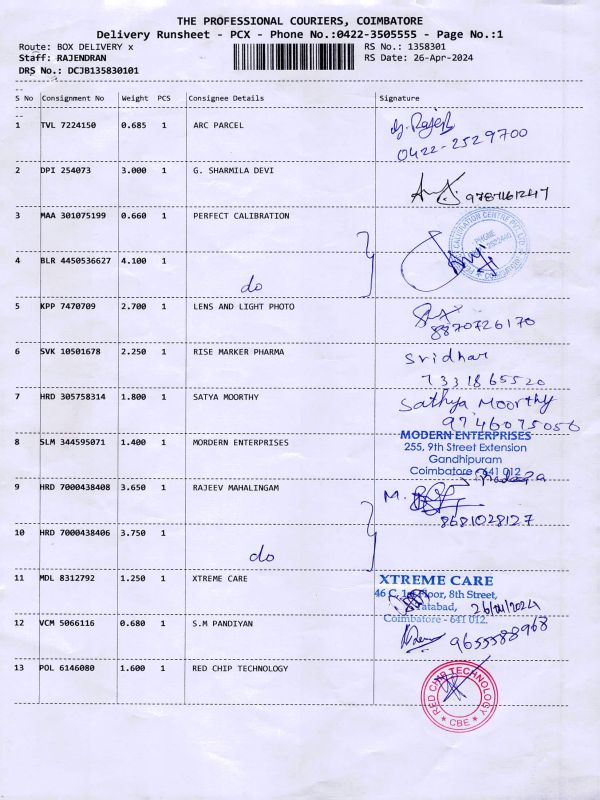 THE PROFESSIONAL COURIERS, COIMBATORE
Delivery Runsheet - PCX - Phone No.:0422-3505555 - Page No.:1
Route: BOX DELIVERY x
RS No.: 1358301
Staff: RAJENDRAN
RS Date: 26-Apr-2024
DRS No.: DCJB135830101
S No Consignment No Weight PCS Consignee Details Signature
1 TVL 7224150 0.685 1 ARC PARCEL
0422-2529700
2 DPI 254073 3.000 1 G. SHARMILA DEVI
3 MAA 301075199 0.660 1 PERFECT CALIBRATION
4 BLR 4450536627 4.100 1
do
5 KPP 7470709 2.700 1 LENS AND LIGHT PHOTO
8870726170
6 SVK 10501678 2.250 1 RISE MARKER PHARMA
Sridhar
7331865520
7 HRD 305758314 1.800 1 SATYA MOORTHY
Sathya Moorthy
9746075056
8 SLM 344595071 1.400 1 MORDERN ENTERPRISES
MODERN ENTERPRISES
255, 9th Street Extension
Gandhipuram
Coimbatore - 641 012
9 HRD 7000438408 3.650 1 RAJEEV MAHALINGAM
M.
8681028127
10 HRD 7000438406 3.750 1
do
11 MDL 8312792 1.250 1 XTREME CARE
XTREME CARE
46 C, 1st Floor, 8th Street,
26/04/2024
Coimbatore - 641 012.
12 VCM 5066116 0.680 1 S.M PANDIYAN
9655588968
13 POL 6146080 1.600 1 RED CHIP TECHNOLOGY
RED CHIP TECHNOLOGY
CBE